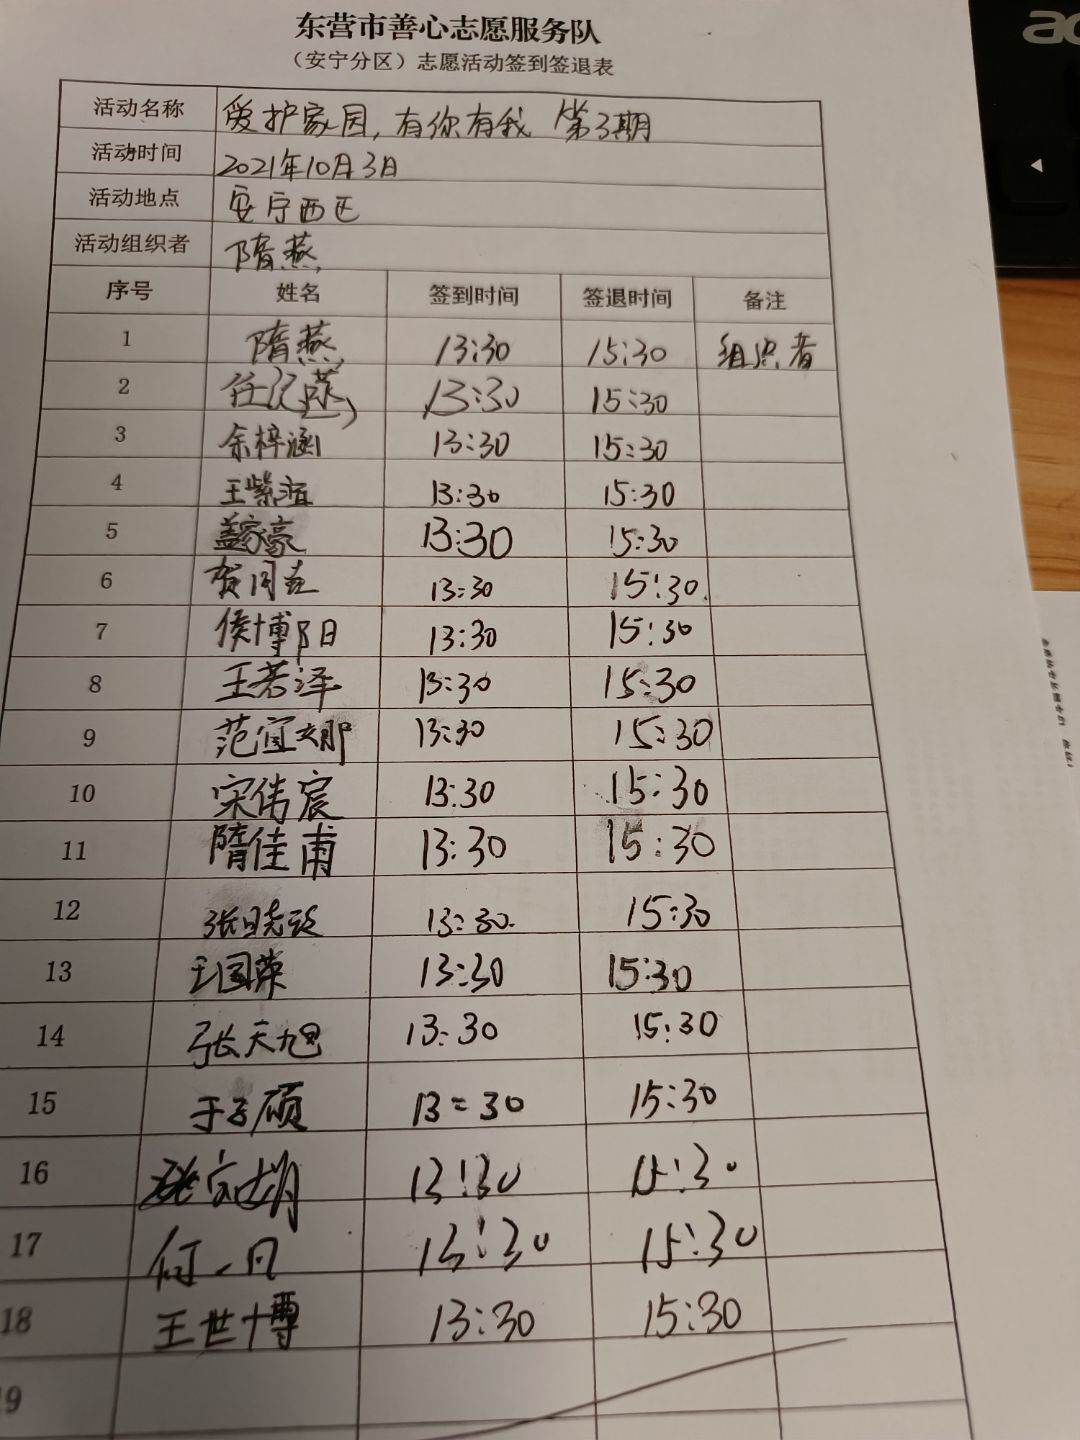 东营市善心志愿服务队
（安宁分区）志愿活动签到签退表
活动名称 爱护家园，有你有我 第3期
活动时间 2021年10月3日
活动地点 安宁西区
活动组织者 隋燕
序号 姓名 签到时间 签退时间 备注
1 隋燕 13:30 15:30 组织者
2 13:30 15:30
3 余梓涵 13:30 15:30
4 王紫涵 13:30 15:30
5 盖家豪 13:30 15:30
6 贺同 13:30 15:30
7 侯博阳 13:30 15:30
8 王若泽 13:30 15:30
9 范宜娜 13:30 15:30
10 宋伟宸 13:30 15:30
11 隋佳甫 13:30 15:30
12 张晓 13:30 15:30
13 王国荣 13:30 15:30
14 张天旭 13:30 15:30
15 于子硕 13:30 15:30
16 13:30 15:30
17 何一凡 13:30 15:30
18 王世博 13:30 15:30
19